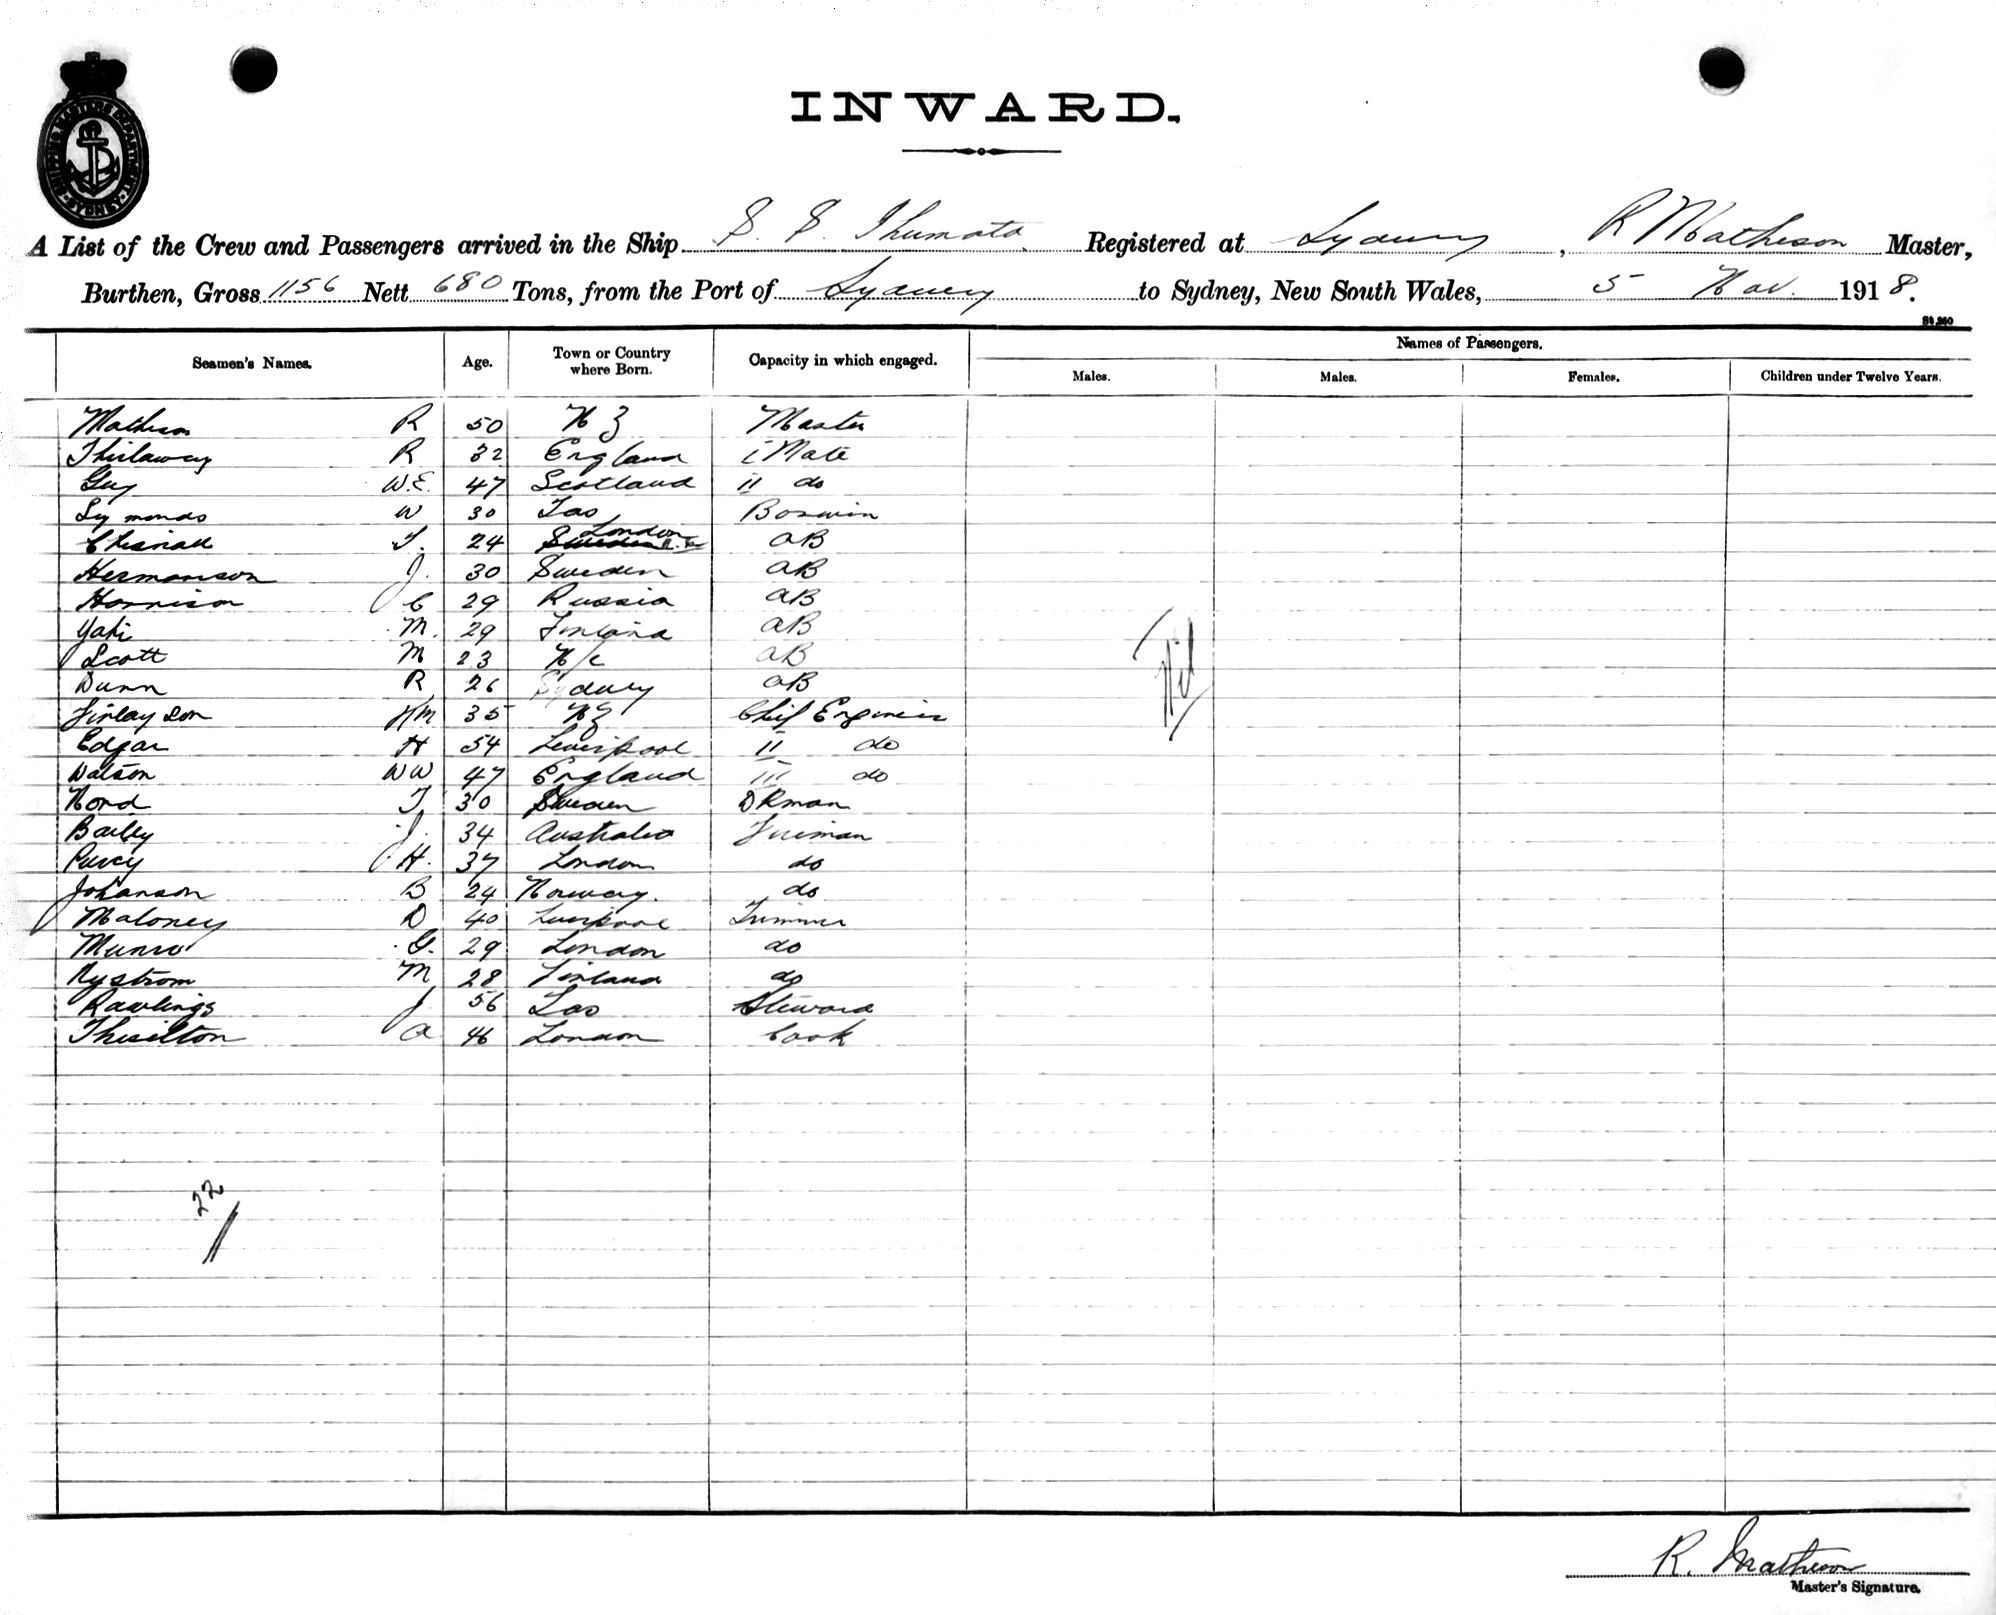 SHIPPING MASTERS DEPARTMENT SYDNEY
INWARD.
A List of the Crew and Passengers arrived in the Ship S. S. Ihumata Registered at Sydney, R Matheson Master,
Burthen, Gross 1156 Nett 680 Tons, from the Port of Sydney to Sydney, New South Wales, 5 Nov. 1918.
Seamen's Names. Age. Town or Country where Born. Capacity in which engaged. Names of Passengers.
Males. Males. Females. Children under Twelve Years.
Matheson R 50 NZ Master
R 32 England i Mate
Guy W.E. 47 Scotland ii do
Symonds W 30 Tas Boswin
24 London Sweden AB
Hermanson J. 30 Sweden AB
Harrison C 29 Russia AB
M. 29 Finland AB
Scott M 23 N/c AB
Dunn R 26 Sydney AB
Finlayson HM 35 NZ Chif Engineer
Edgar H 54 Liverpool II do
Watson WW 47 England III do
Nord T 30 Sweden DKman
Bailey J. 34 Australia Fireman
H. 37 London do
Johanson B 24 Norway. do
Maloney D 40 Liverpool Trimmer
Munro G. 29 London do
Nystrom M 28 Finland do
Rawlings J 56 Tas Steward
Thiselton A 46 London Cook
Nil
22
R. Matheson
Master's Signature.